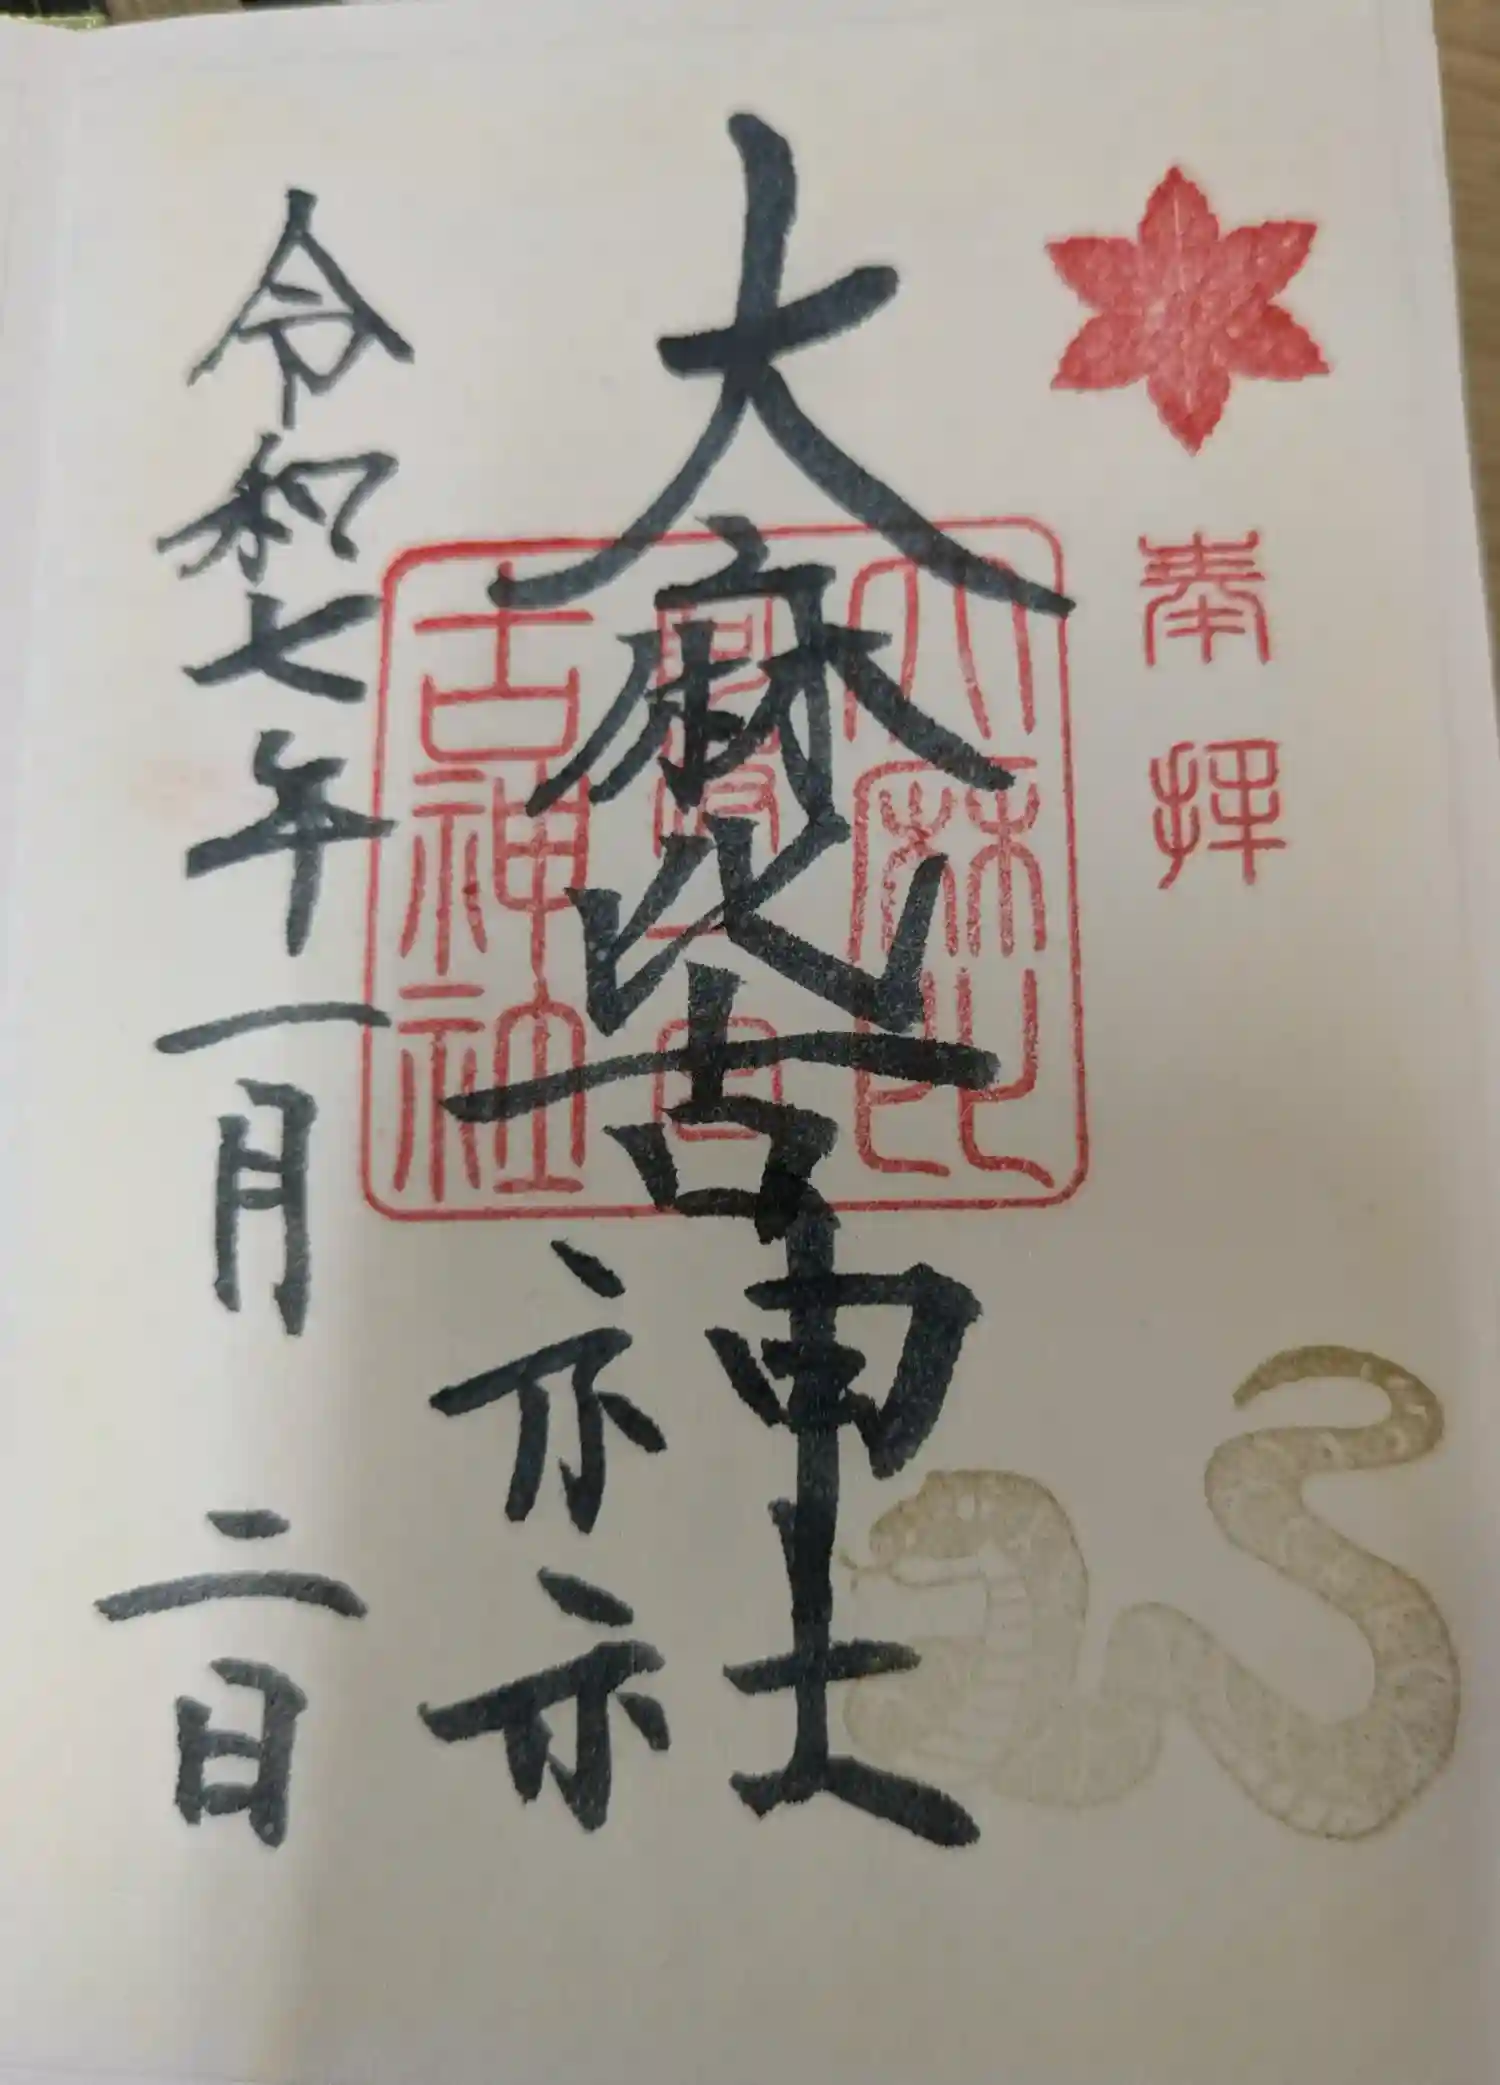 奉拝
大麻比古神社
大麻比
古神社
令和七年一月二日